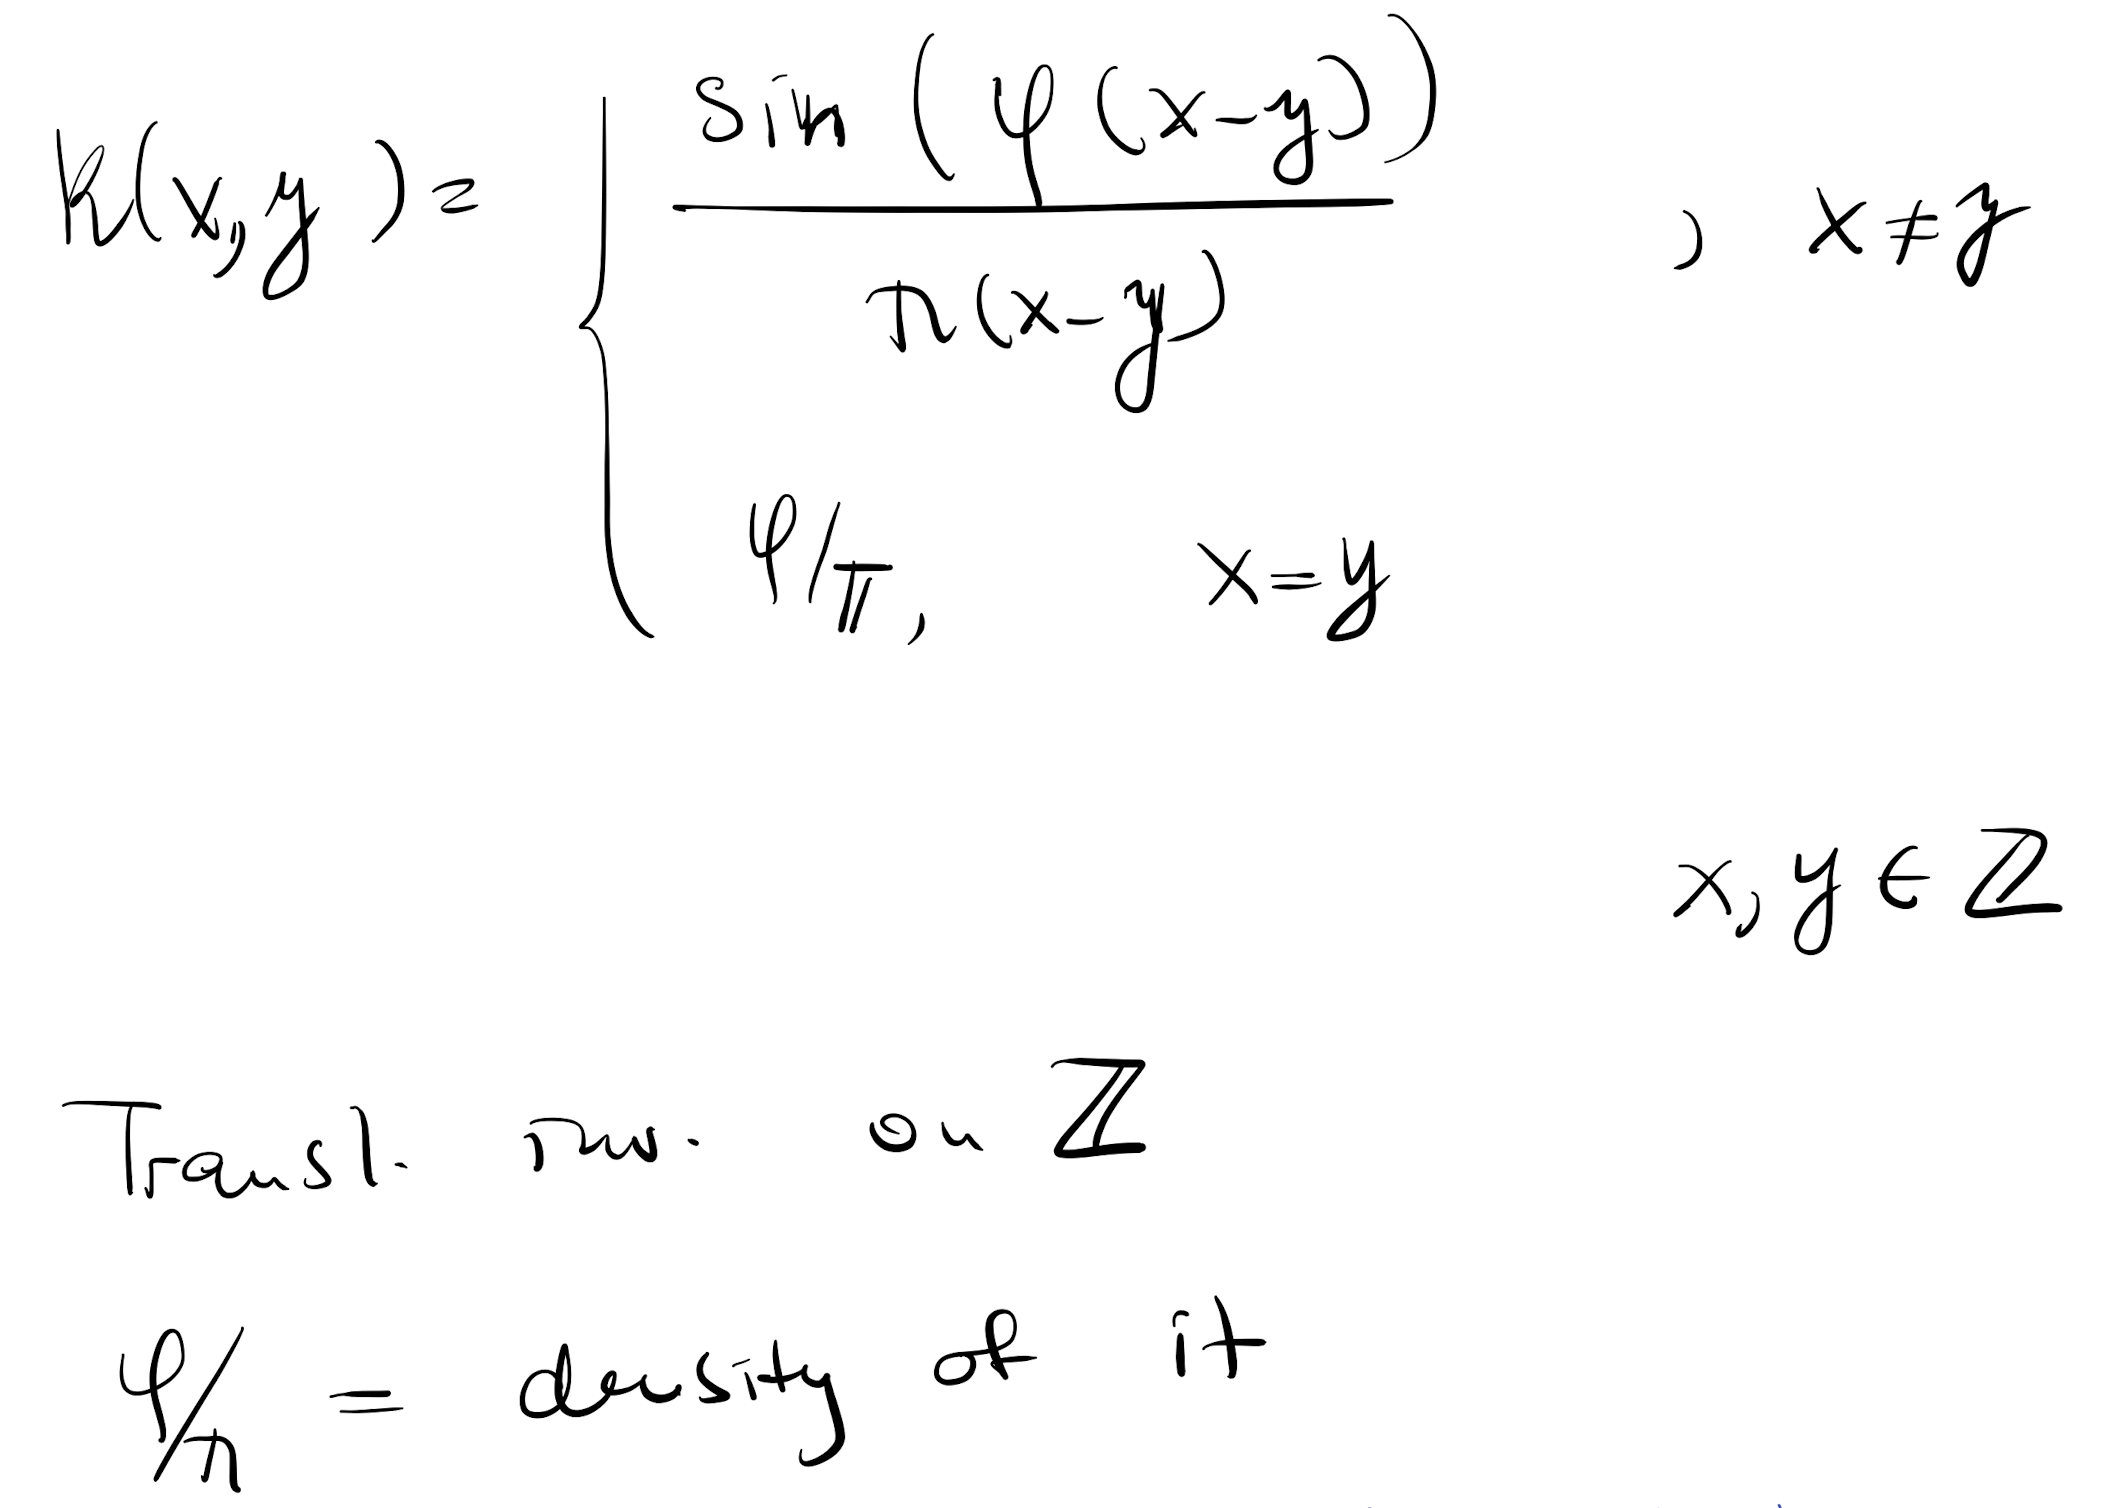 K(x,y) = { sin(φ(x-y)) / π(x-y) , x ≠ y
φ/π, x = y
x, y ∈ ℤ
Transl. inv. on ℤ
φ/π = density of it